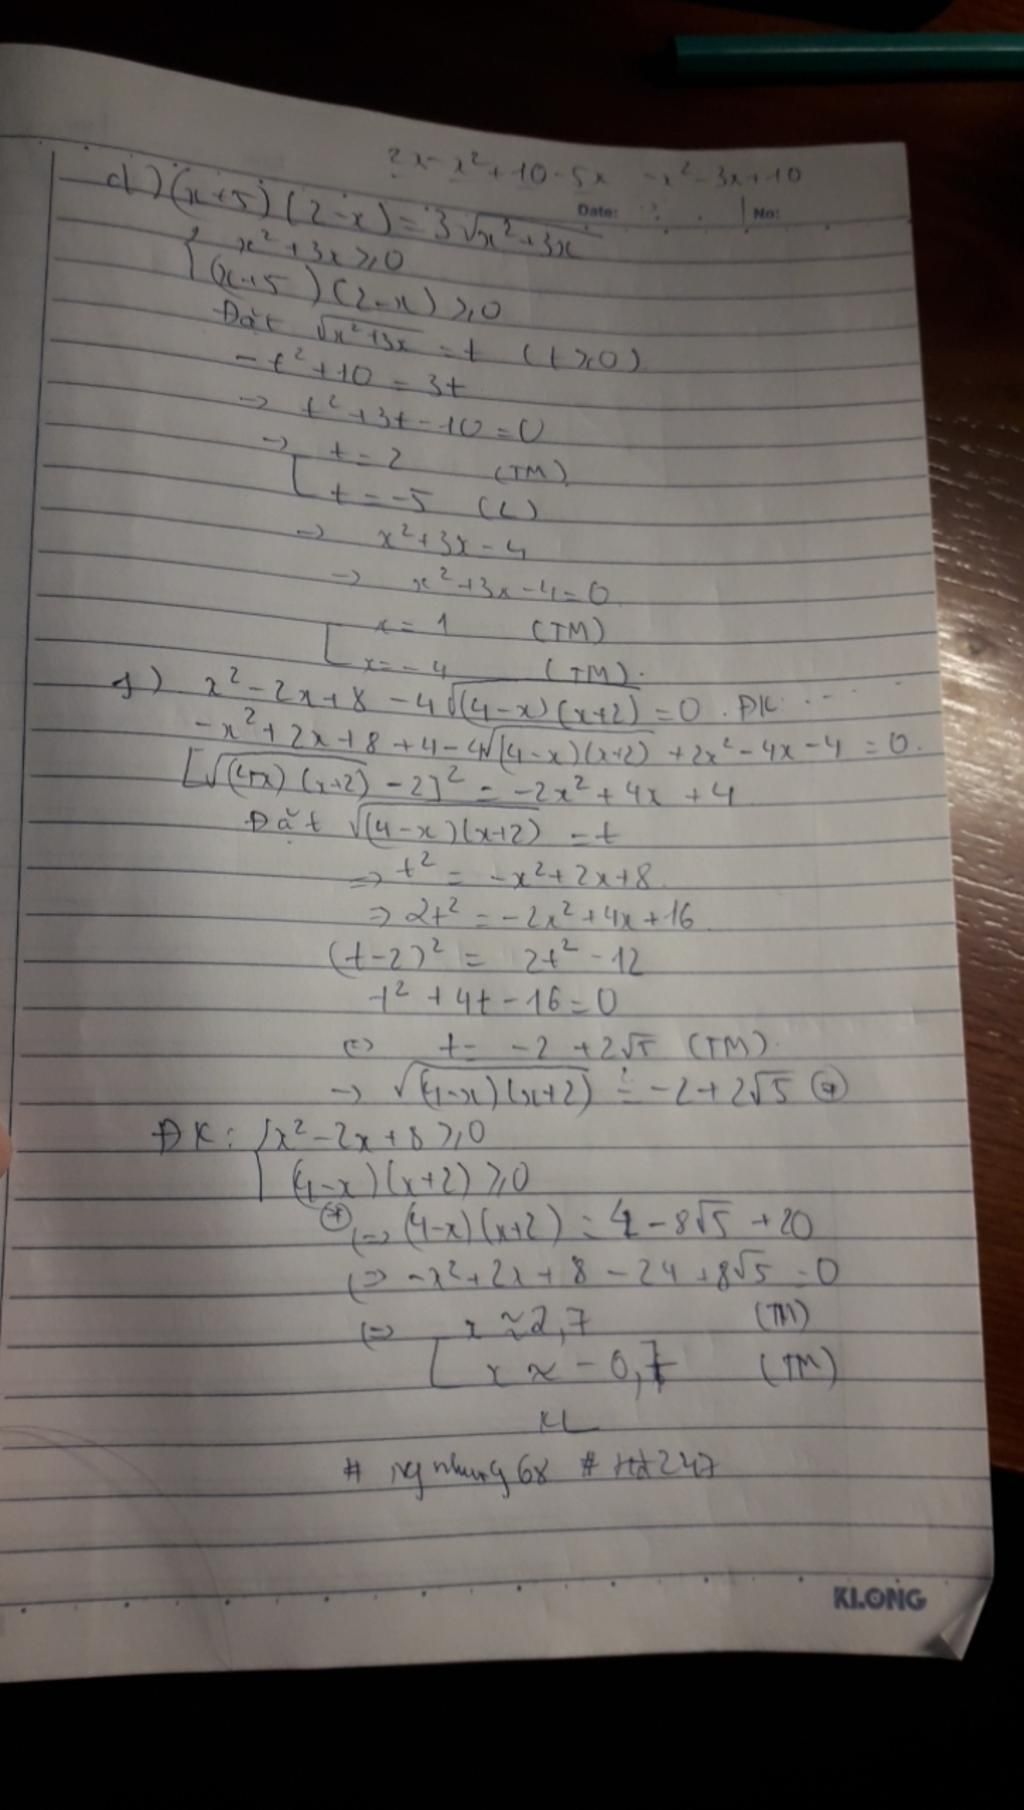 2x - x² + 10 - 5x   -x² - 3x + 10
Date:   No:
d) (x+5)(2-x) = 3√x²+3x
{ x² + 3x ⩾ 0
(x+5)(2-x) ⩾ 0
Đặt √x²+3x = t (t ⩾ 0)
-t² + 10 = 3t
→ t² + 3t - 10 = 0
→ [ t = 2 (TM)
t = -5 (L)
→ x² + 3x - 4
→ x² + 3x - 4 = 0
[ x = 1 (TM)
x = -4 (TM).
f) x² - 2x + 8 - 4√(4-x)(x+2) = 0. ĐK: ...
-x² + 2x + 8 + 4 - 4√(4-x)(x+2) + 2x² - 4x - 4 = 0.
[√(4-x)(x+2) - 2]² = -2x² + 4x + 4
Đặt √(4-x)(x+2) = t
⇒ t² = -x² + 2x + 8
⇒ 2t² = -2x² + 4x + 16
(t-2)² = 2t² - 12
t² + 4t - 16 = 0
⇔ t = -2 + 2√5 (TM)
→ √(4-x)(x+2) = -2 + 2√5 (*)
ĐK: { x² - 2x + 8 ⩾ 0
(4-x)(x+2) ⩾ 0
(*) ⇔ (4-x)(x+2) = 4 - 8√5 + 20
⇔ -x² + 2x + 8 - 24 + 8√5 = 0
⇔ [ x ≈ 2,7 (TM)
x ≈ -0,7 (TM)
KL
# ngnhung68 # Hd247
KLONG